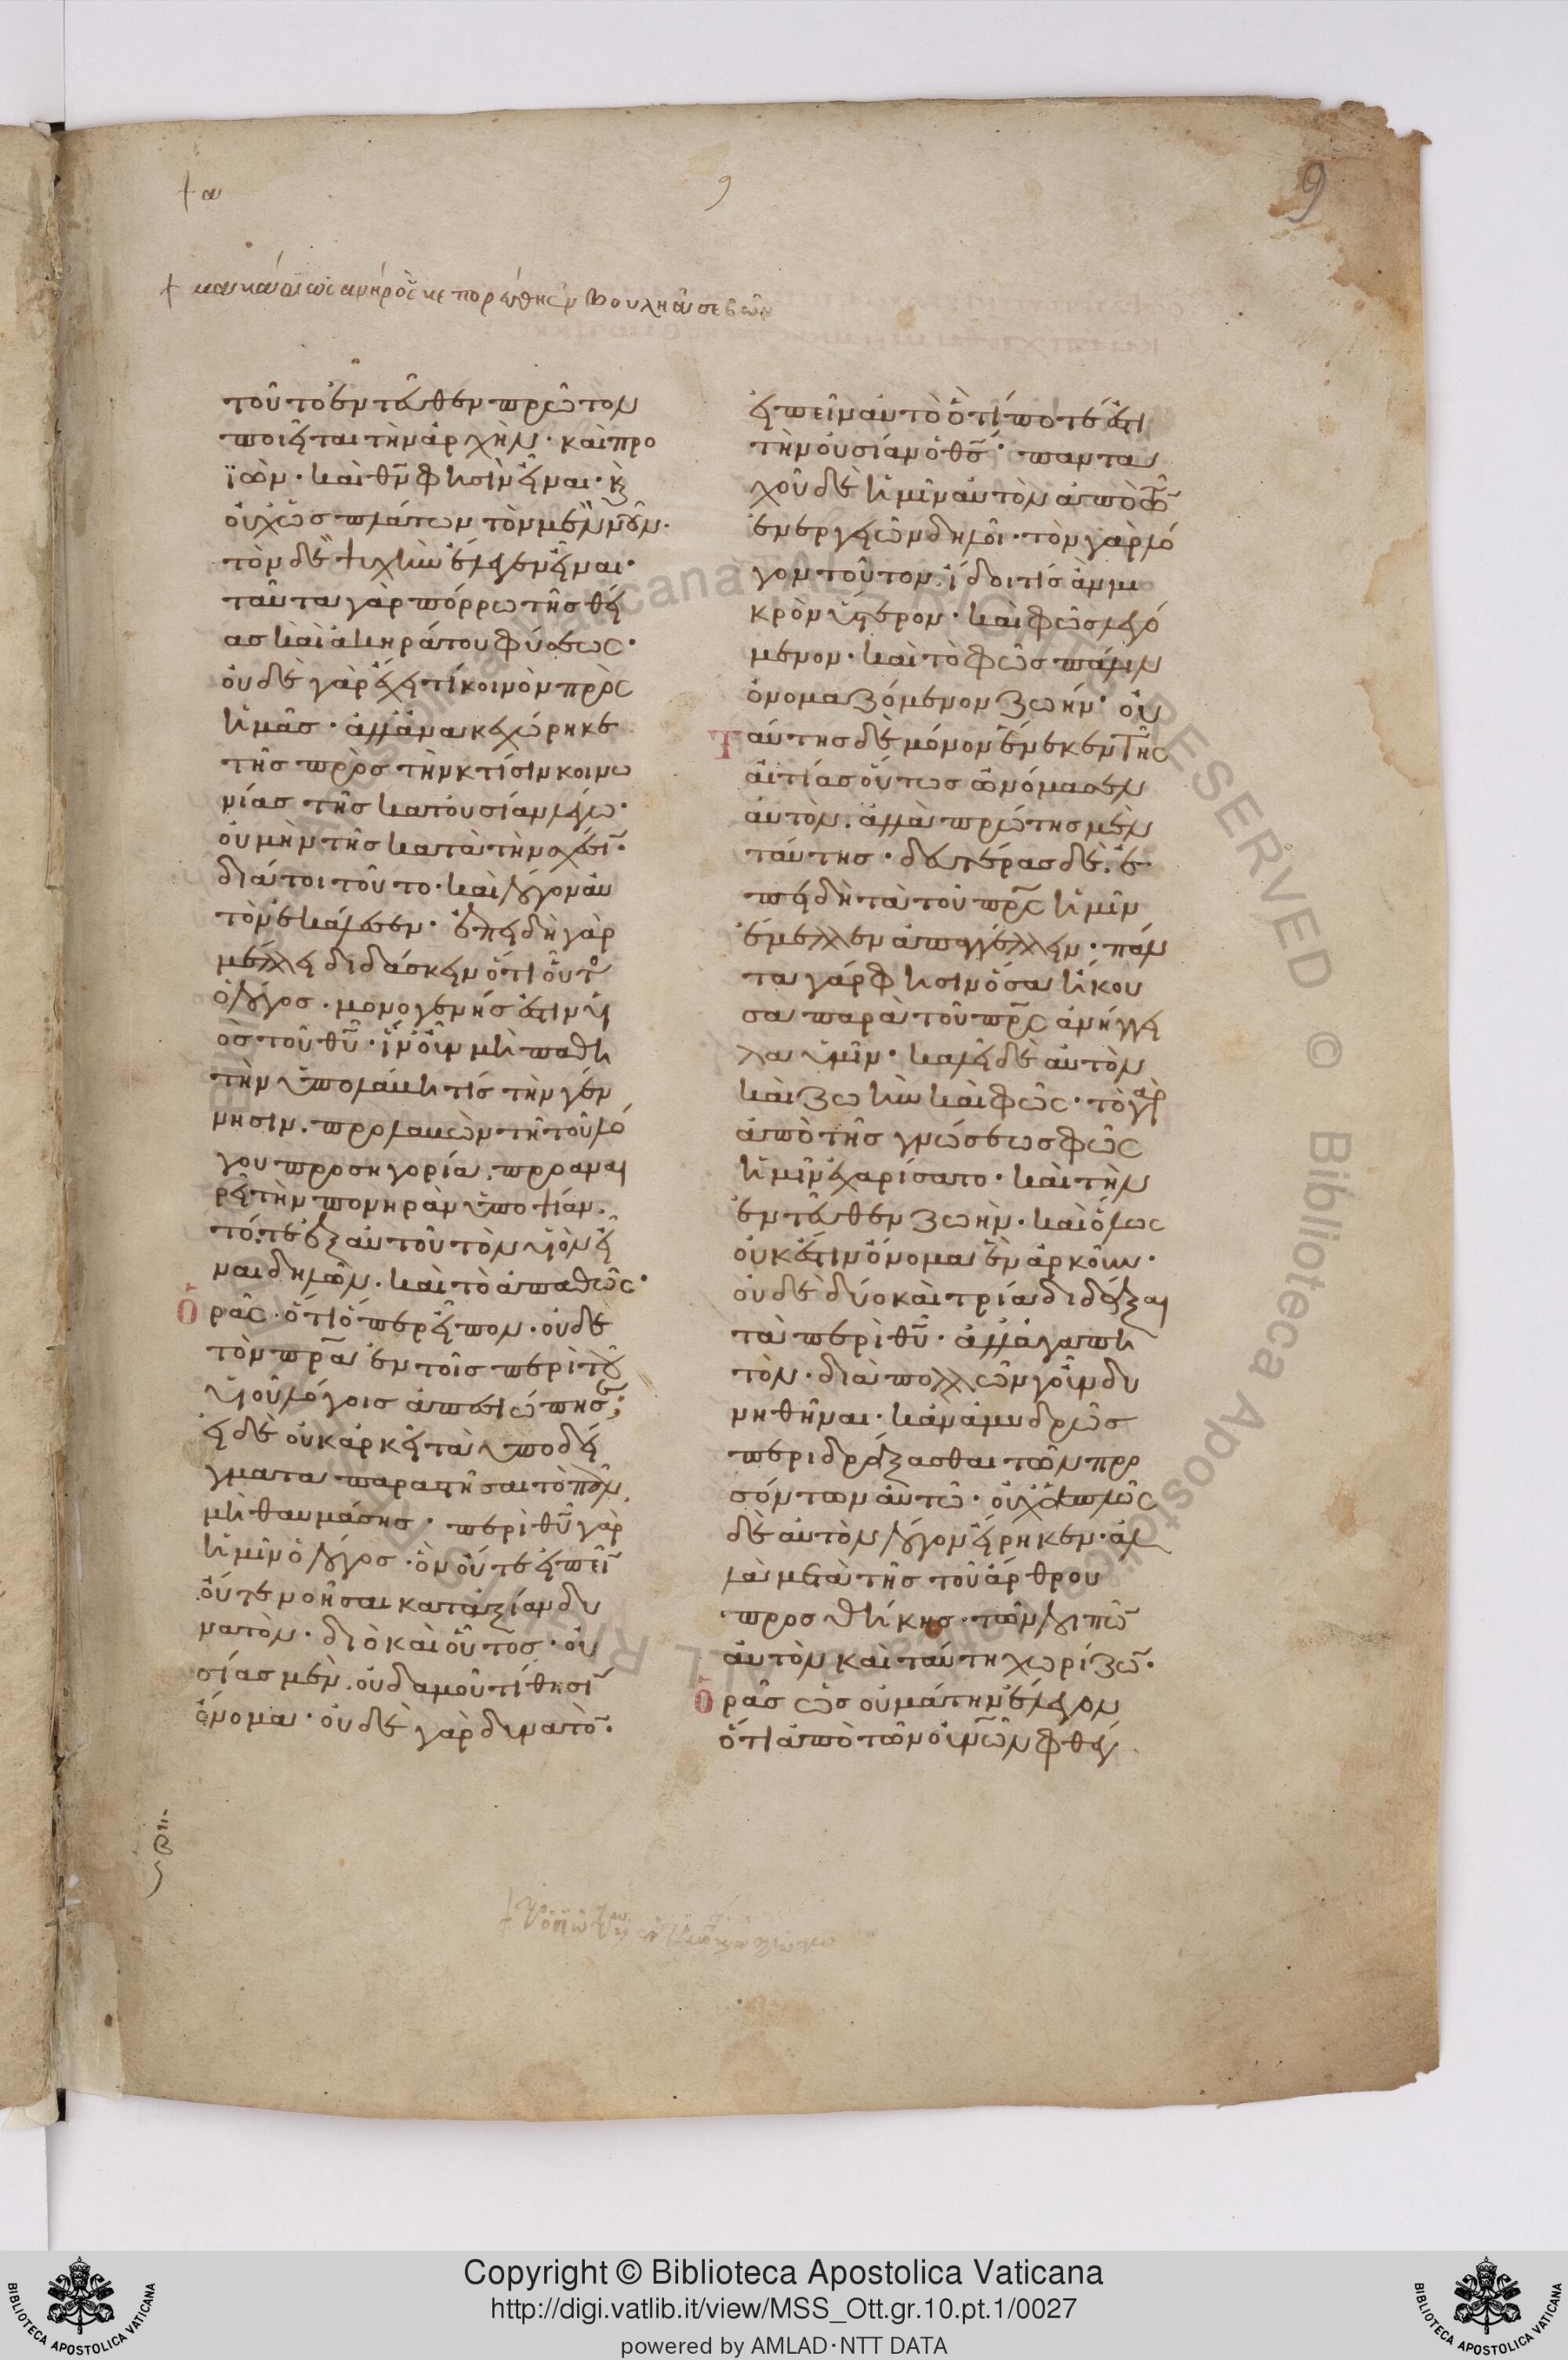 + α
9
9
+ μακάριος ανηρ ὃς ουκ επορέυθη ἐν βουλη ἀσεβῶν
τοῦτο ἐντεῦθεν πρῶτον
ποιεῖται τὴν ἀρχὴν· καὶ προ
ϊὼν· καὶ θν̄ φησὶν εἶναι· κ̀
οὐχ ὡς πλάτων τὸν μὲν νοῦν·
τὸν δὲ ψυχὴν ἔλεγεν εἶναι·
ταῦτα γὰρ πόρρω τῆς θεί
ας καὶ ἀκηράτου φύσεως·
οὐδὲ γὰρ ἔχει τί κοινὸν πρὸς
ἡμᾶς· ἀλλ' ἀνακεχώρηκε
τῆς πρὸς τὴν κτίσιν κοινω
νίας τῆς κατουσίαν λέγω·
οὐ μὴν τῆς κατὰ τὴν σχέσῑ·
διά τοι τοῦτο· καὶ λόγον αὐ
τὸν ἐκάλεσεν· ἐπειδὴ γὰρ
μέλλει διδάσκειν ὅτι οὗτο
ὁ λόγος· μονογενής ἐστιν υἱ
ὸς τοῦ θῦ· ἵν' οὖν μὴ παθη
τὴν ὑπολάβη τίς τὴν γέν
νησιν. προλαβὼν τῆ τοῦ λό
γου προσηγορία. προαναι
ρεῖ τὴν πονηρὰν ὑποψίαν.
τό, τε ἐξ αὐτοῦ τὸν υἱὸν εἶ
ναι δηλῶν. καὶ τὸ ἀπαθῶς·
Ὁρᾶς· ὅτι ὅπερ εἶπον· οὐδὲ
τὸν πρ̄α ἐν τοῖς περὶ τοῦ
υἱοῦ λόγοις ἀπεσιώπησε;
εἰ δὲ οὐκ ἀρκεῖ τὰ ὑποδεί
γματα παραστῆσαι τὸ πᾶν,
μὴ θαυμάσης· περὶ θῦ γὰρ
ἡμῖν ὁ λόγος· ὃν οὔτε εἰπεῖ̄
οὔτε νοῆσαι κατ' ἀξίαν δυ
νατὸν· διὸ καὶ οὗτος· οὐ
σίας μὲν. οὐδαμοῦ τίθησῑ
ὄνομα· οὐδὲ γὰρ δυνατὸ̄·
εἰπεῖν αὐτὸ ὅ τί ποτέ ἐστι
τὴν οὐσίαν ὁ θς̄· παντα
χοῦ δὲ ἡμῖν αὐτὸν ἀπὸ τῶ̄
ἐνεργειῶν δηλοῖ· τὸν γὰρ λό
γον τοῦτον. ἴδοι τίς ἂν μι
κρὸν ὕστερον· καὶ φῶς λεγό
μενον· καὶ τὸ φῶς πάλιν
ὀνομαζόμενον ζωήν· οὐ
Ταύτης δὲ μόνον ἕνεκεν τῆς
αἰτίας οὕτως ὠνόμασεν
αὐτὸν. ἀλλὰ πρώτης μὲν
ταύτης· δευτέρας δὲ. ἐ
πειδὴ τὰ τοῦ πρ̄ς ἡμῖν
ἔμελλεν ἀπαγγέλλειν· πάν
τα γάρ φησιν ὅσα ἤκου
σα παρὰ τοῦ πρ̄ς ἀνήγγει
λα ὑμῖν· καλεῖ δὲ αὐτὸν
καὶ ζωὴν καὶ φῶς· τὸ γὰρ
ἀπὸ τῆς γνώσεως φῶς
ἡμῖν ἐχαρίσατο· καὶ τὴν
ἐντεῦθεν ζωὴν· καὶ ὅλως
οὐκ ἔστιν ὄνομα ἓν ἀρκοῦν·
οὐδὲ δύο καὶ τρία διδάξαι
τὰ περὶ θῦ· ἀλλ' ἀγαπη
τὸν· διὰ πολλῶν γοῦν δυ
νηθῆναι· κἂν ἀμυδρῶς
περιδράξασθαι τῶν προ
σόντων αὐτῶ· οὐχ ἁπλῶς
δὲ αὐτὸν λόγον εἴρηκεν· ἀλ
λὰ μετὰ τῆς τοῦ ἄρθρου
προσθήκης· τῶν λοιπῶ̄
αὐτὸν καὶ ταύτη χωρίζω̄·
Ὁρᾶς ὡς οὐ μάτην ἔλεγον
ὅτι ἀπὸ τῶν οὐν̄ῶν φθέγ
Copyright © Biblioteca Apostolica Vaticana
http://digi.vatlib.it/view/MSS_Ott.gr.10.pt.1/0027
powered by AMLAD·NTT DATA
BIBLIOTECA APOSTOLICA VATICANA
BIBLIOTECA APOSTOLICA VATICANA